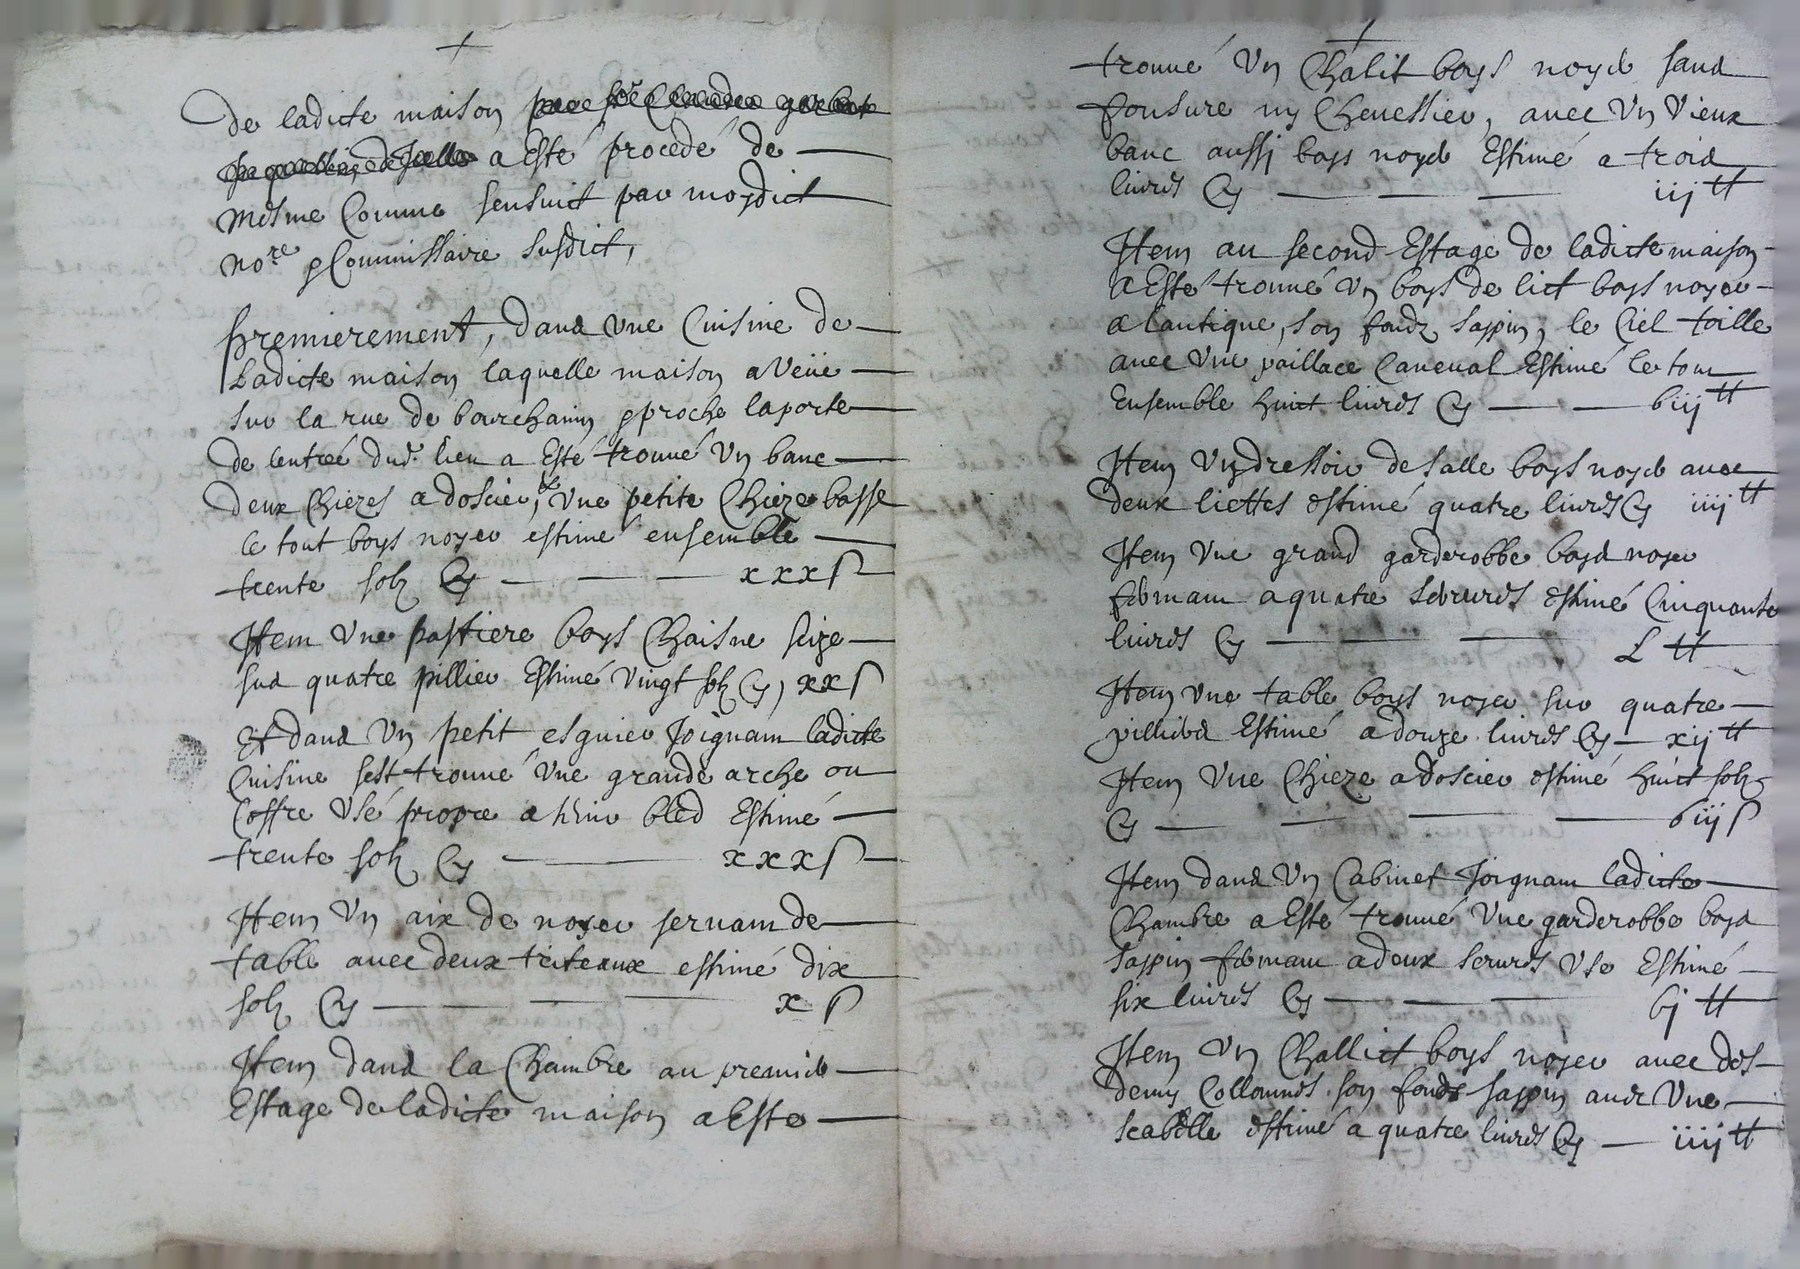 De ladicte maison
a esté procédé de
mesme comme sensuict par moydict
nore & commissaire susdict,
Premierement, dans une cuisine de
Ladicte maison laquelle maison a veüe
sur la rue de bourchanin & proche la porte
de lentrée dud. lieu a esté trouvé un banc
deux chiezes a dossier, & une petite chieze basse
le tout boys noyer estimé ensemble
trente solz cy xxx s
Item une pastiere boys chaisne
sus quatre pillier estimé vingt solz cy, xx s
Et dans un petit esguier joignam ladicte
cuisine sest trouvé une grande arche ou
coffre usé propre a tenir bled estimé
trente solz cy xxx s
Item un aix de noyer servam de
table avec deux triteaux estimé dix
solz cy x s
Item dans la chambre au premier
estage de ladicte maison a esté
trouvé un chalit boys noyer sans
fonsure ny chevessier, avec un vieux
banc aussi boys noyer estimé a trois
livres cy iij tt
Item au second estage de ladicte maison
a esté trouvé un boys de lict boys noyer
a lantique, son fondz sappin, le ciel toille
avec une paillace caneval estimé le tout
ensemble huict livres cy biij tt
Item un dressoir de salle boys noyer avec
deux liettes estimé quatre livres cy iiij tt
Item une grand garderobbe boys noyer
fermam a quatre serrures estimé cinquante
livres cy L tt
Item une table boys noyer sur quatre
pilliers estimé a douze livres cy xij tt
Item une chieze a dossier estimé huict solz
cy biij s
Item dans un cabinet joignam ladicte
chambre a esté trouvé une garderobbe boys
sappin fermam a deux serures usé estimé
six livres cy bj tt
Item un challict boys noyer avec des
demy collonnes son fonds sappin avec une
scabelle estimé a quatre livres cy iiij tt